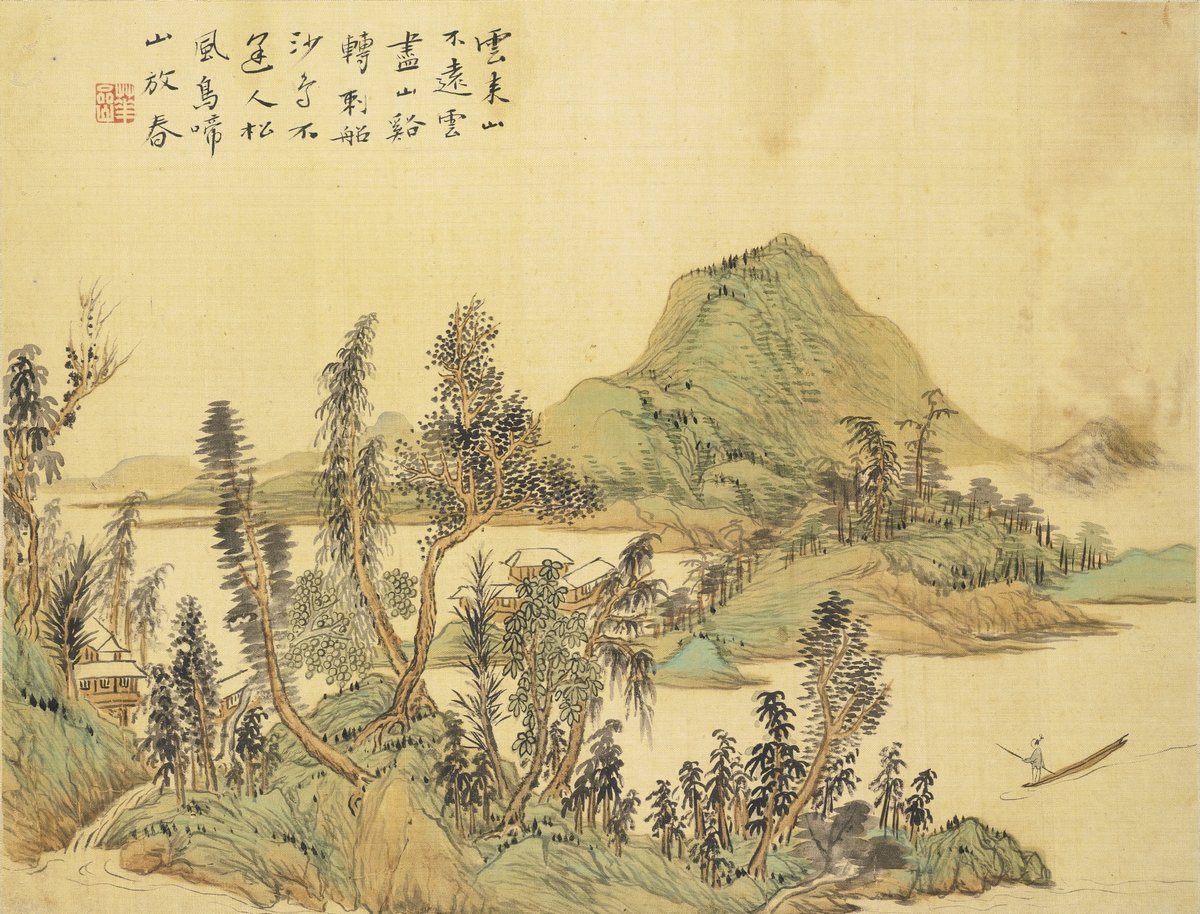 雲来山
不遠雲
盡山谿
轉刺船
沙鳥不
逢人松
風鳥啼
山放春
華嵒